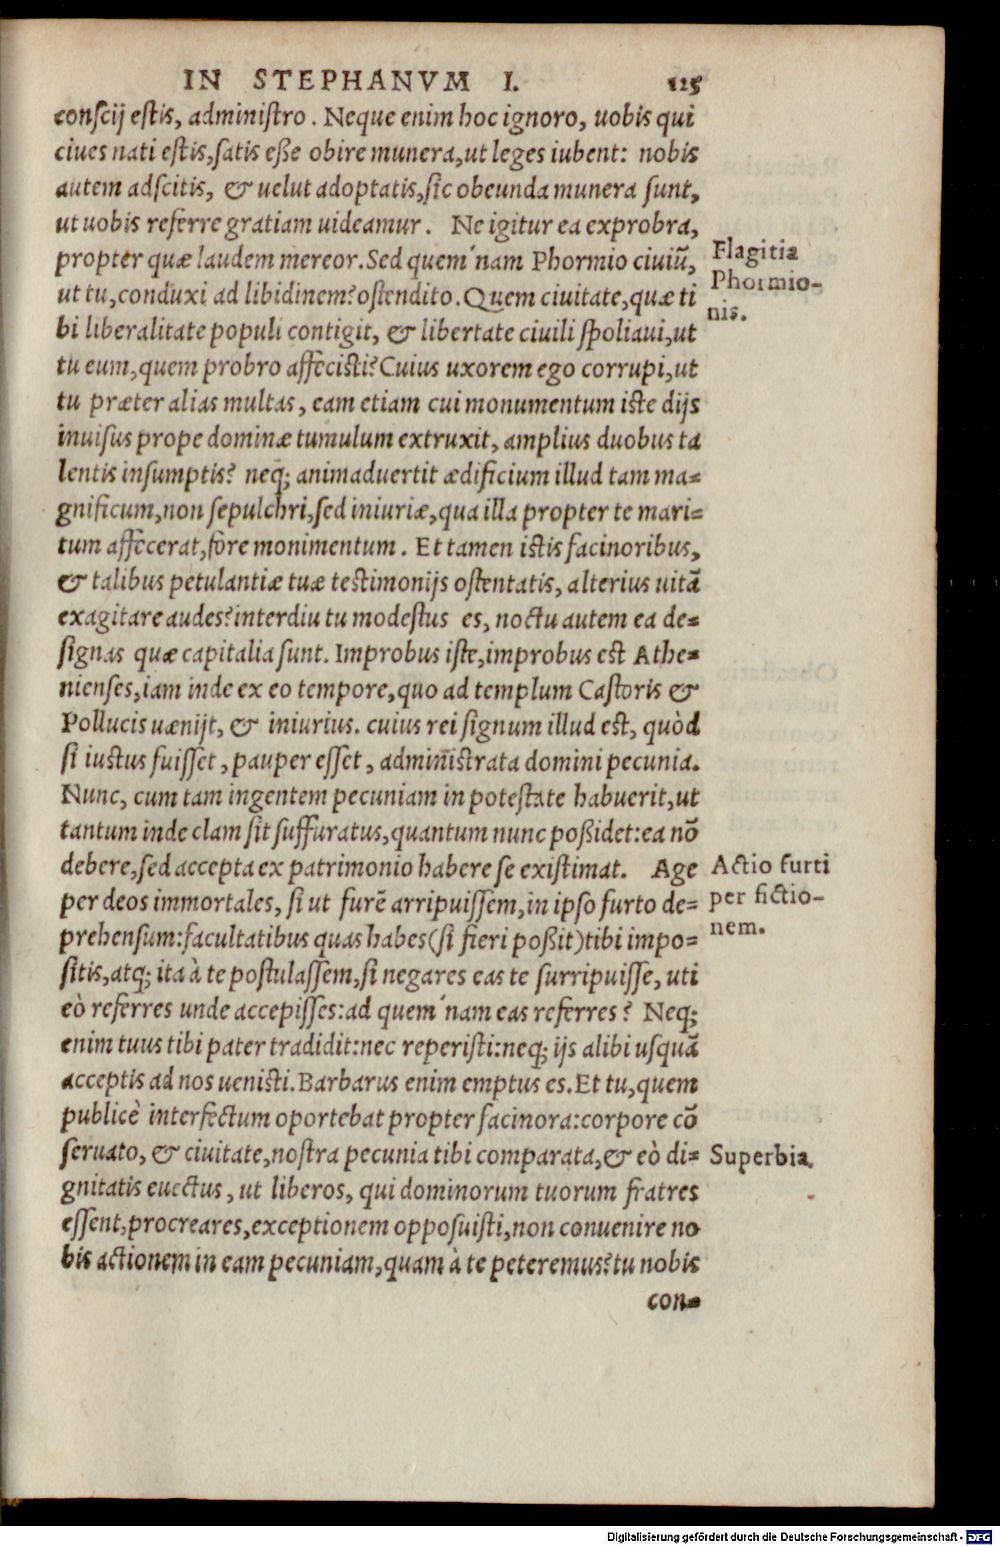 IN STEPHANVM I. 125
conſcij eſtis, adminiſtro. Neque enim hoc ignoro, uobis qui
ciues nati eſtis, ſatis eße obire munera, ut leges iubent: nobis
autem adſcitis, & uelut adoptatis, ſic obeunda munera ſunt,
ut uobis referre gratiam uideamur. Ne igitur ea exprobra,
propter quæ laudem mereor. Sed quem´nam Phormio ciuiũ,
ut tu, conduxi ad libidinem? oſtendito. Quem ciuitate, quæ ti
bi liberalitate populi contigit, & libertate ciuili ſpoliaui, ut
tu eum, quem probro affeciſti? Cuius uxorem ego corrupi, ut
tu præter alias multas, eam etiam cui monumentum iſte dijs
inuiſus prope dominæ tumulum extruxit, amplius duobus ta
lentis inſumptis? neq; animaduertit ædificium illud tam ma=
gnificum, non ſepulchri, ſed iniuriæ, qua illa propter te mari=
tum affecerat, fore monimentum. Et tamen iſtis facinoribus,
& talibus petulantiæ tuæ teſtimonijs oſtentatis, alterius uitã
exagitare audes? interdiu tu modeſtus es, noctu autem ea de=
ſignas quæ capitalia ſunt. Improbus iſte, improbus est Athe=
nienſes, iam inde ex eo tempore, quo ad templum Caſtoris &
Pollucis uænijt, & iniurius. cuius rei ſignum illud eſt, quòd
ſi iuſtus fuiſſet, pauper eſſet, adminiſtrata domini pecunia.
Nunc, cum tam ingentem pecuniam in poteſtate habuerit, ut
tantum inde clam ſit ſuffuratus, quantum nunc poßidet: ea nõ
debere, ſed accepta ex patrimonio habere ſe exiſtimat. Age
per deos immortales, ſi ut furẽ arripuiſſem, in ipſo furto de=
prehenſum: facultatibus quas habes (ſi fieri poßit) tibi impo=
ſitis, atq; ita à te poſtulaſſem, ſi negares eas te ſurripuiſſe, uti
eò referres unde accepiſſes: ad quem´nam eas referres? Neq;
enim tuus tibi pater tradidit: nec reperiſti: neq; ijs alibi uſquã
acceptis ad nos ueniſti. Barbarus enim emptus es. Et tu, quem
publicè interfectum oportebat propter facinora: corpore cõ
ſeruato, & ciuitate, noſtra pecunia tibi comparata, & eò di=
gnitatis euectus, ut liberos, qui dominorum tuorum fratres
eſſent, procreares, exceptionem oppoſuiſti, non conuenire no
bis actionem in eam pecuniam, quam à te peteremus? tu nobis
con=
Flagitia
Phormio-
nis.
Actio furti
per fictio-
nem.
Superbia.
Digitalisierung gefördert durch die Deutsche Forschungsgemeinschaft - DFG